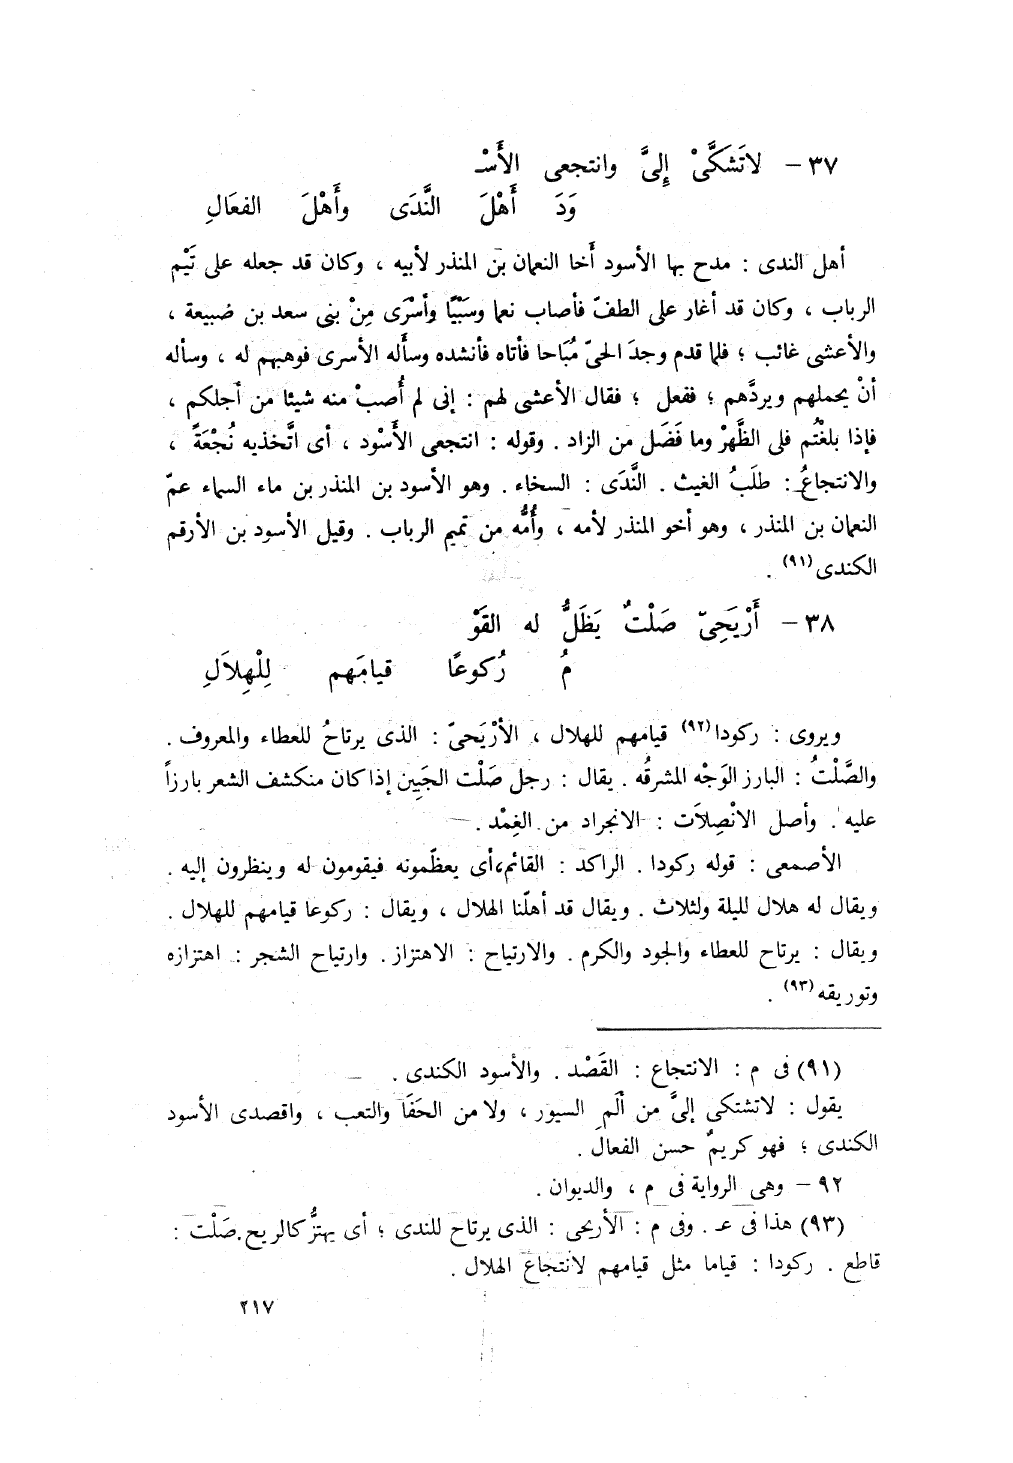 ٣٧ – لاتَشَكَّىْ إِلىَّ وانتجعى الأَسْـ
وَدَ أَهْلَ النَّدَى وأَهْلَ الفعَالِ
أهل الندى : مدح بها الأسود أَخا النعمان بن المنذر لأبيه ، وكان قد جعله على تَيْم
الرباب ، وكان قد أغار على الطفّ فأصاب نعما وسَبْيًا وأسْرَى مِنْ بنى سعد بن ضُبيعة ،
والأعشى غائب ؛ فلما قدم وجدَ الحىّ مُبَاحا فأتاه فأنشده وسأَله الأسرى فوهبهم له ، وسأله
أنْ يحملهم ويردَّهم ؛ ففعل ؛ فقال الأعشى لهم : إنى لم أُصبْ منه شيئا من أجلكم ،
فإذا بلغْتُم فلى الظَّهرْ وما فَضَل من الزاد . وقوله : انتجعى الأَسْود ، أى اتَّخذيه نُجْعَةً ،
والانتجاعُ : طلَبُ الغيث . النَّدَى : السخاء . وهو الأسود بن المنذر بن ماء السماء عمّ
النعمان بن المنذر ، وهو أخو المنذر لأمه ، وأُمُّه من تميم الرباب . وقيل الأسود بن الأرقم
الكندى (٩١) .
٣٨ – أَرْيَحِىّ صَلْتٌ يَظَلُّ له القَوْ
مُ رُكوعًا قيامَهم لِلْهِلاَلِ
ويروى : ركودا (٩٢) قيامهم للهلال ، الأرْيَحىّ : الذى يرتاحُ للعطاء والمعروف .
والصَّلْتُ : البارز الوَجْه المشرقُه . يقال : رجل صَلْت الجَبِين إذا كان منكشف الشعر بارزاً
عليه . وأصل الانْصِلاَت : الانجراد من الغِمْد .
الأصمعى : قوله ركودا . الراكد : القائم،أى يعظّمونه فيقومون له وينظرون إليه .
ويقال له هلال لليلة ولثلاث . ويقال قد أهلّنا الهلال ، ويقال : ركوعا قيامهم للهلال .
ويقال : يرتاح للعطاء والجود والكرم . والارتياح : الاهتزاز . وارتياح الشجر : اهتزازه
وتوريقه (٩٣) .
(٩١) فى م : الانتجاع : القَصْد . والأسود الكندى .
يقول : لاتشتكى إلىَّ من ألَم السيور ، ولا من الحَفَا والتعب ، واقصدى الأسود
الكندى ؛ فهو كريمٌ حسن الفعال .
٩٢ – وهى الرواية فى م ، والديوان .
(٩٣) هذا فى عـ . وفى م : الأريحى : الذى يرتاح للندى ؛ أى يهتزُّ كالريح . صَلْت :
قاطع . ركودا : قياما مثل قيامهم لانتجاع الهلال .
٢١٧